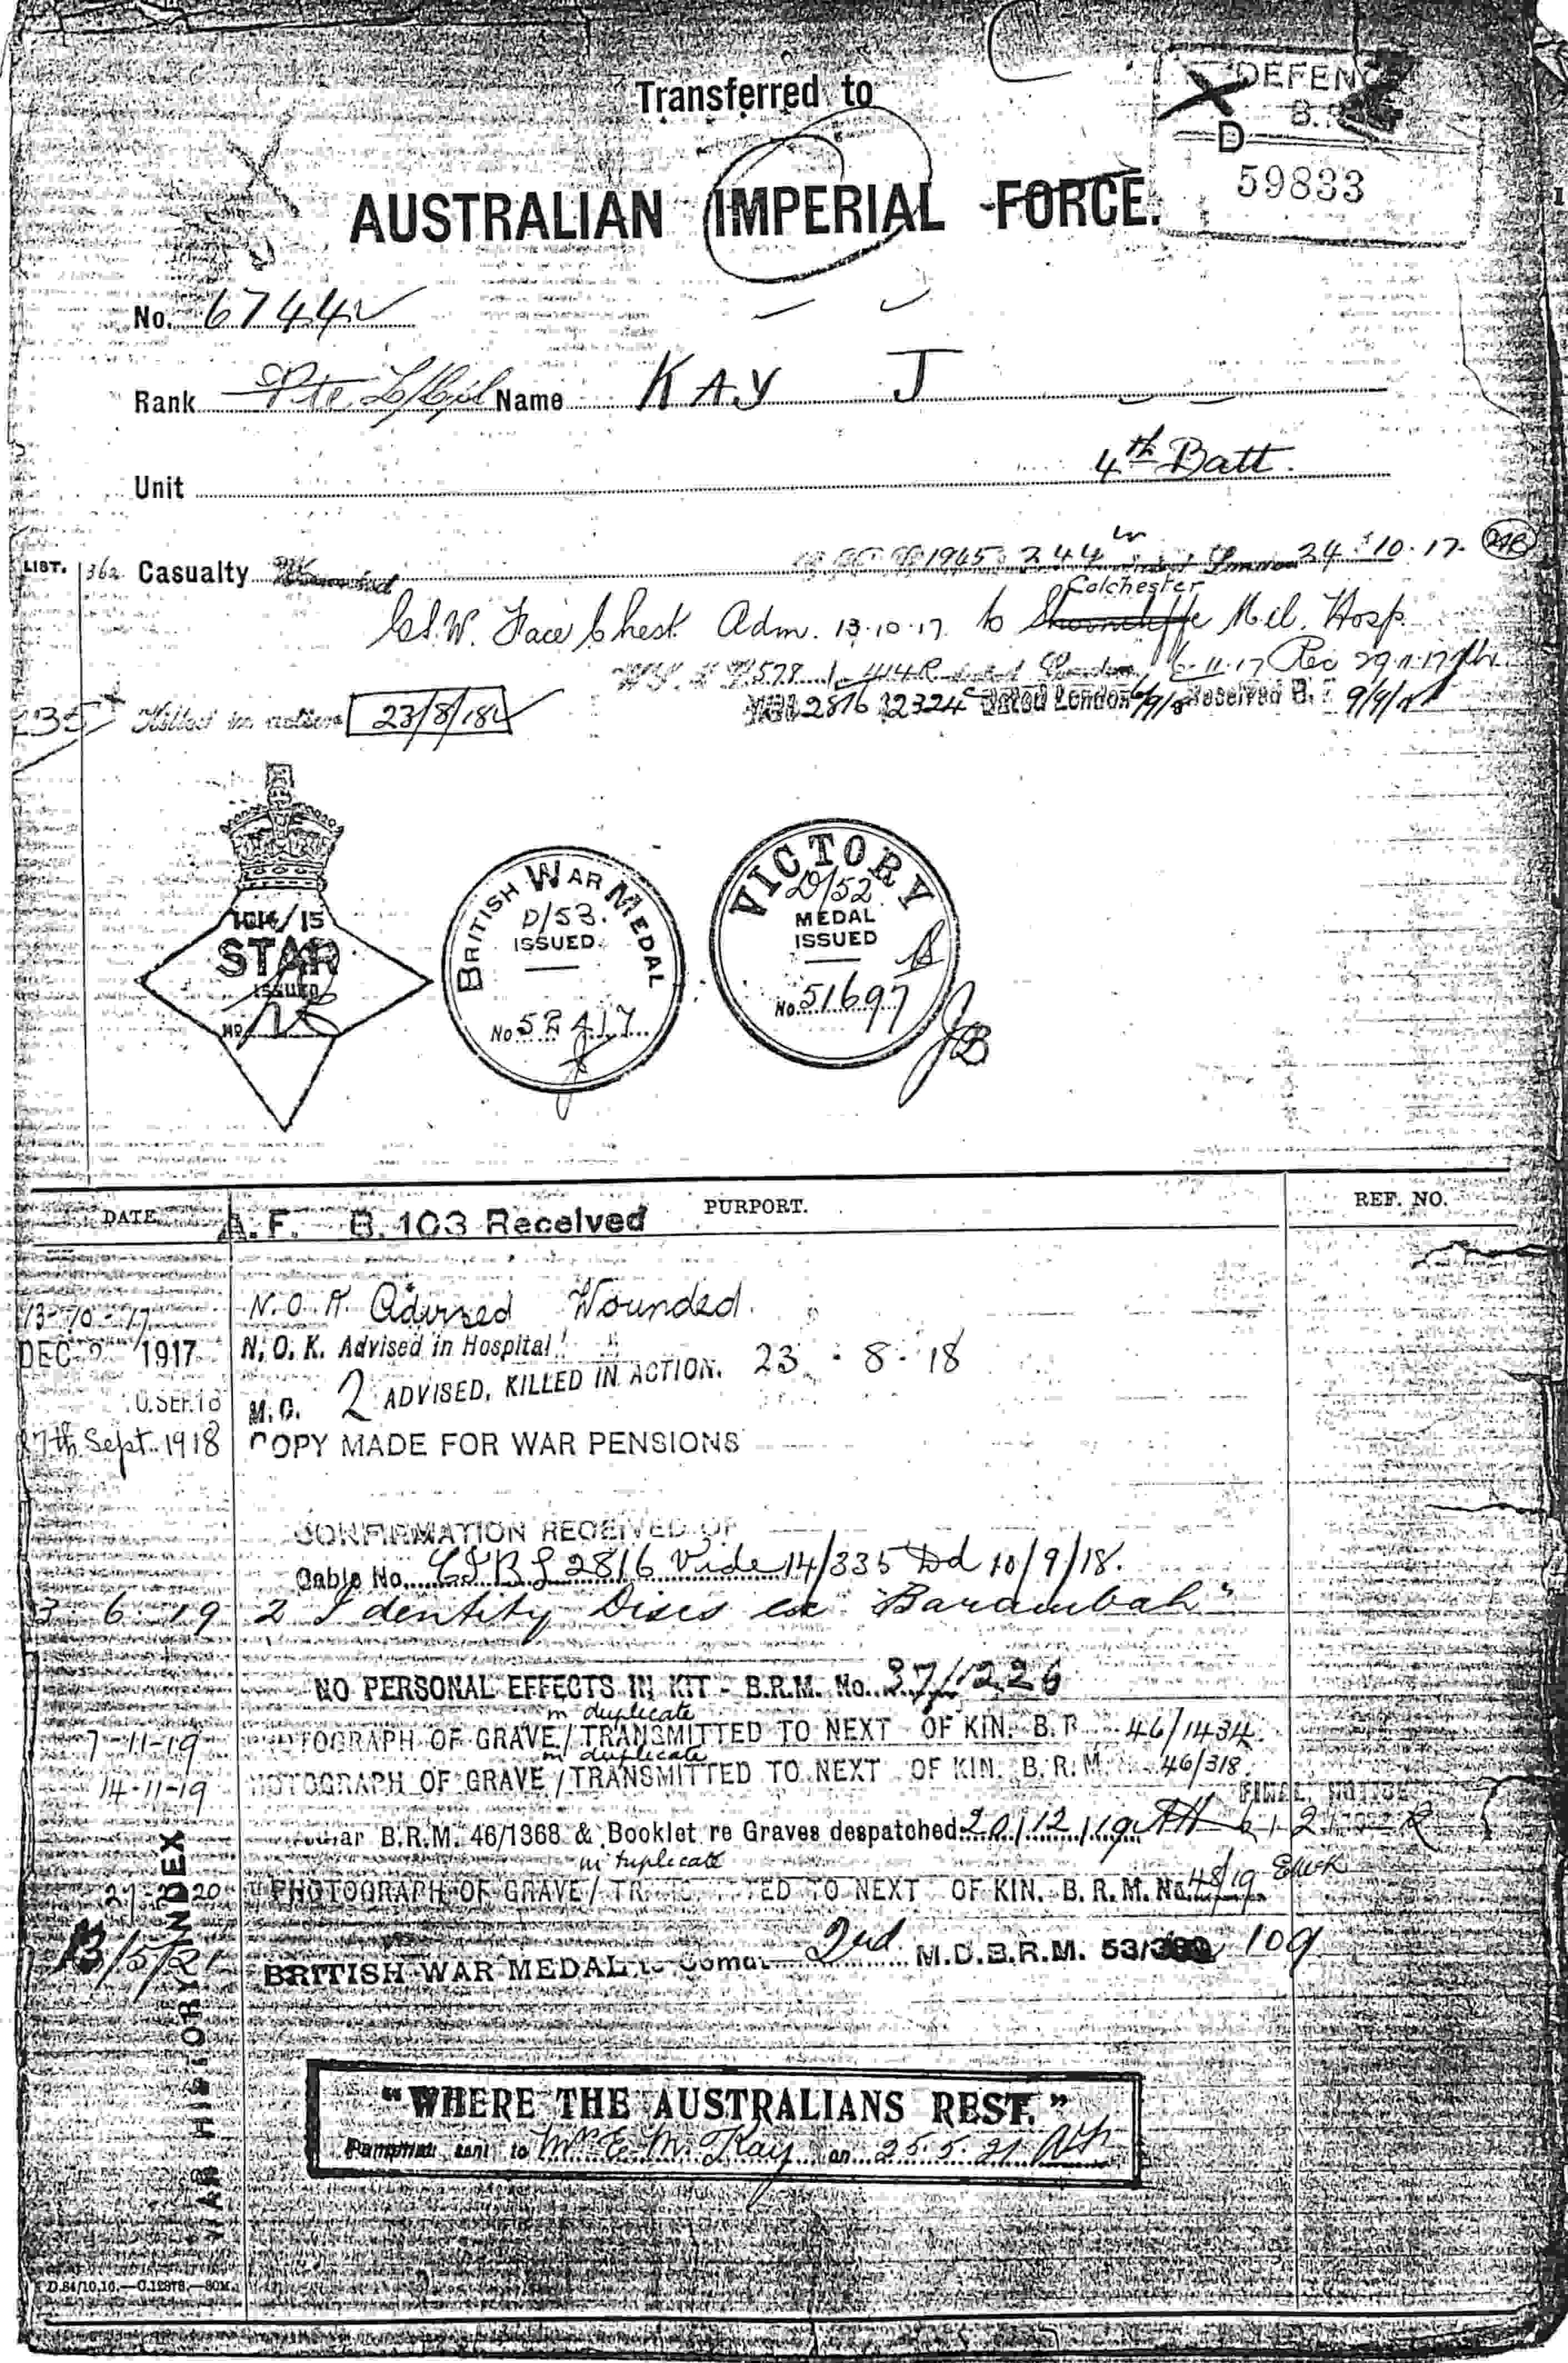 Transferred to
DEFENCE
B.
D
59833
AUSTRALIAN IMPERIAL FORCE.
No. 6744
Rank Pte L/Cpl Name KAY J
Unit 4th Batt.
LIST. 362 Casualty Wounded 1965 244 24.10.17.
Colchester
G.S.W. Face Chest Adm. 13.10.17. to Shorncliffe Mil. Hosp.
6.11.17 Rec 29.11.17
335 Killed in action 23/8/18 2816 12324 Dated London 6/9/18 Received B. 9/9/18
1914/15
STAR
ISSUED
No
BRITISH WAR MEDAL
D/53.
ISSUED
No
VICTORY
D/52
MEDAL
ISSUED
No. 51697
JB
DATE A. F. B. 103 Received PURPORT. REF. NO.
13-10-17 N.O.K. Advised Wounded.
DEC 1917 N.O.K. Advised in Hospital
SEP. 18 M.O. 2 ADVISED, KILLED IN ACTION. 23.8.18
7th Sept. 1918 COPY MADE FOR WAR PENSIONS
CONFIRMATION RECEIVED OF
Cable No. 2816 Vide 14/335 Dd 10/9/18.
3 6 19 2 Identity Discs ex "Barambah"
NO PERSONAL EFFECTS IN KIT - B.R.M. No. 37/1226
in duplicate
7-11-19 PHOTOGRAPH OF GRAVE / TRANSMITTED TO NEXT OF KIN. B.R. 46/1434.
in duplicate
14-11-19 PHOTOGRAPH OF GRAVE / TRANSMITTED TO NEXT OF KIN. B.R.M. 46/318.
FINAL NOTICE
B.R.M. 46/1368 & Booklet re Graves despatched 20/12/19
in triplicate
20 PHOTOGRAPH OF GRAVE / TRANSMITTED TO NEXT OF KIN. B.R.M. No. 48/19
13/5/21 BRITISH WAR MEDAL to Comdt 2nd M.D.B.R.M. 53/ 109
WAR HISTORY INDEX
"WHERE THE AUSTRALIANS REST."
Pamphlet sent to Mrs E. M. Kay on 25.5.21
D.84/10.16.—C.12878.—80M.